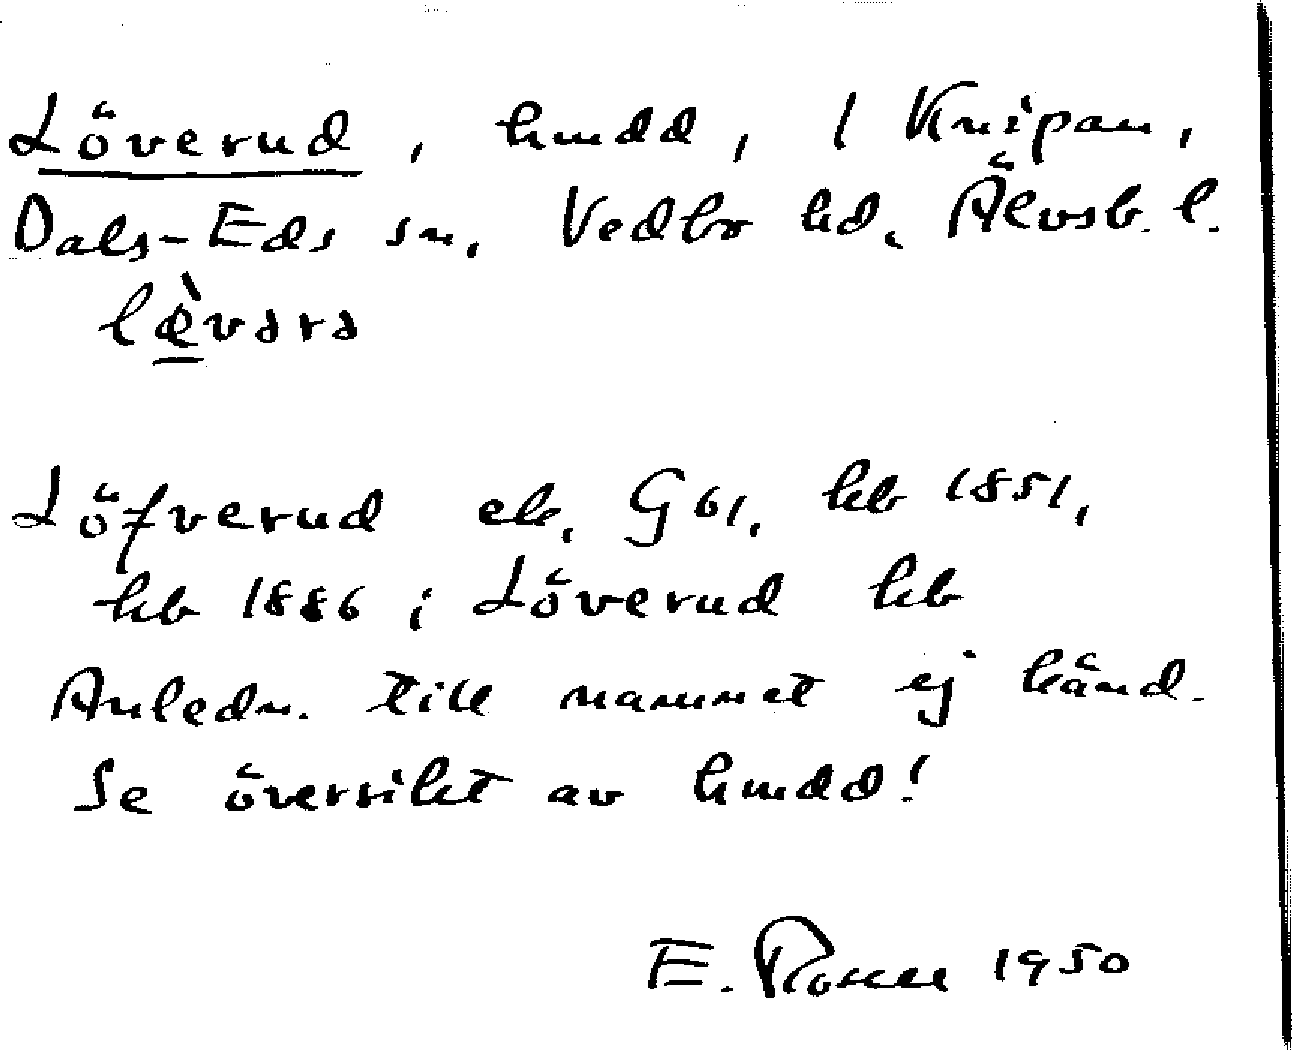 Löverud, hmdd, 1 Knipan,
Dals-Eds sn. Vedbo hd. Älvsb. l.
lævərə
Löfverud ek. G 61, hb 1851,
hb 1886 ; Löverud kb
Anledn. till namnet ej känd.
Se översikt av hmdd!
E. Rosell 1950